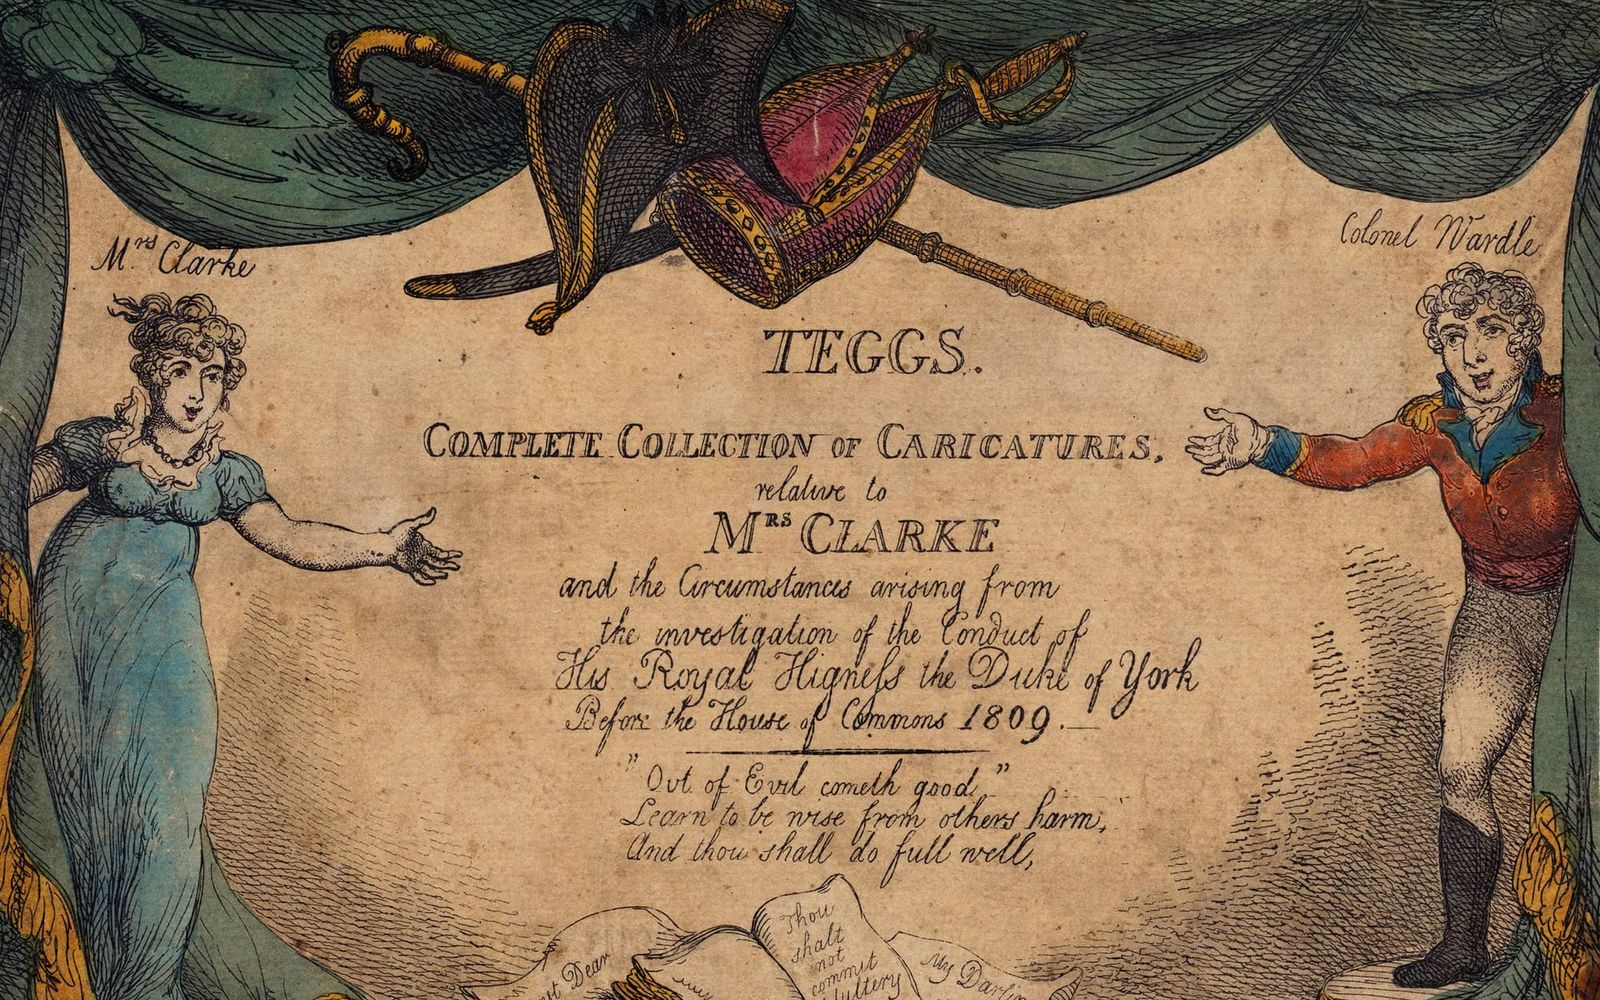 Mrs Clarke
Colonel Wardle
TEGGS.
COMPLETE COLLECTION OF CARICATURES,
relative to
MRS CLARKE
and the Circumstances arising from
the investigation of the Conduct of
His Royal Higneſs the Duke of York
Before the House of Commons 1809.
"Out of Evil cometh good"
Learn to be wise from others harm,
And thou shall do full well,
Dear
Thou
shalt
not
commit
My